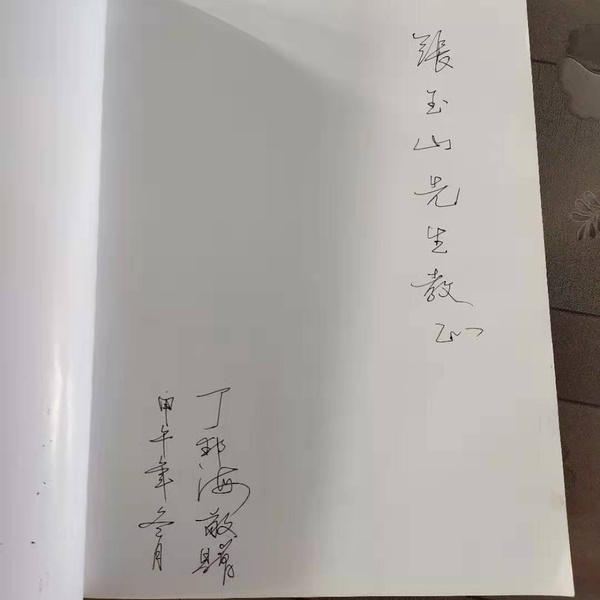 張玉山先生教正
丁邦海敬贈
甲午年冬月